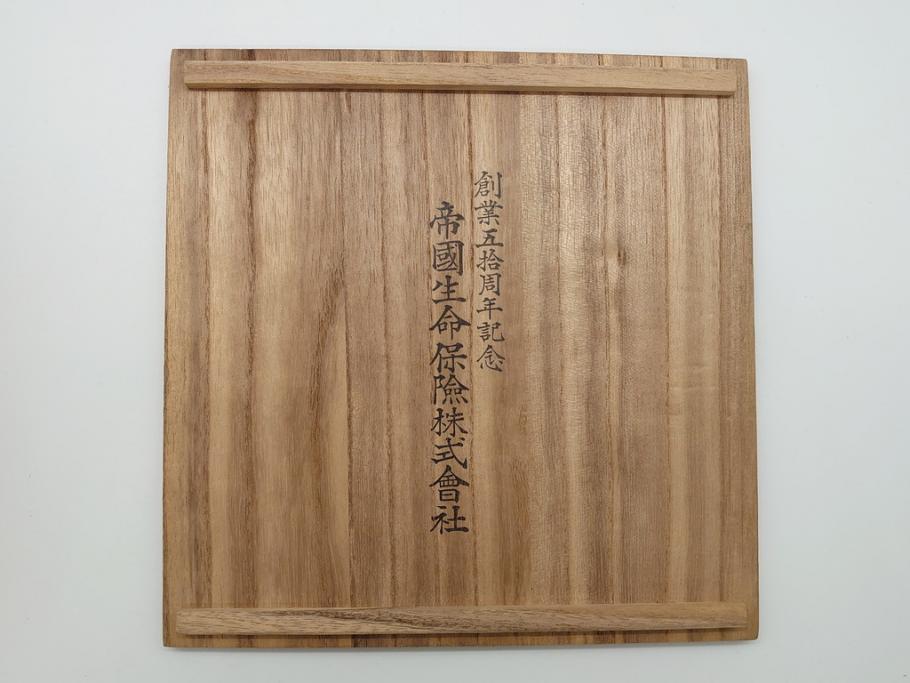 創業五拾周年記念
帝國生命保險株式會社